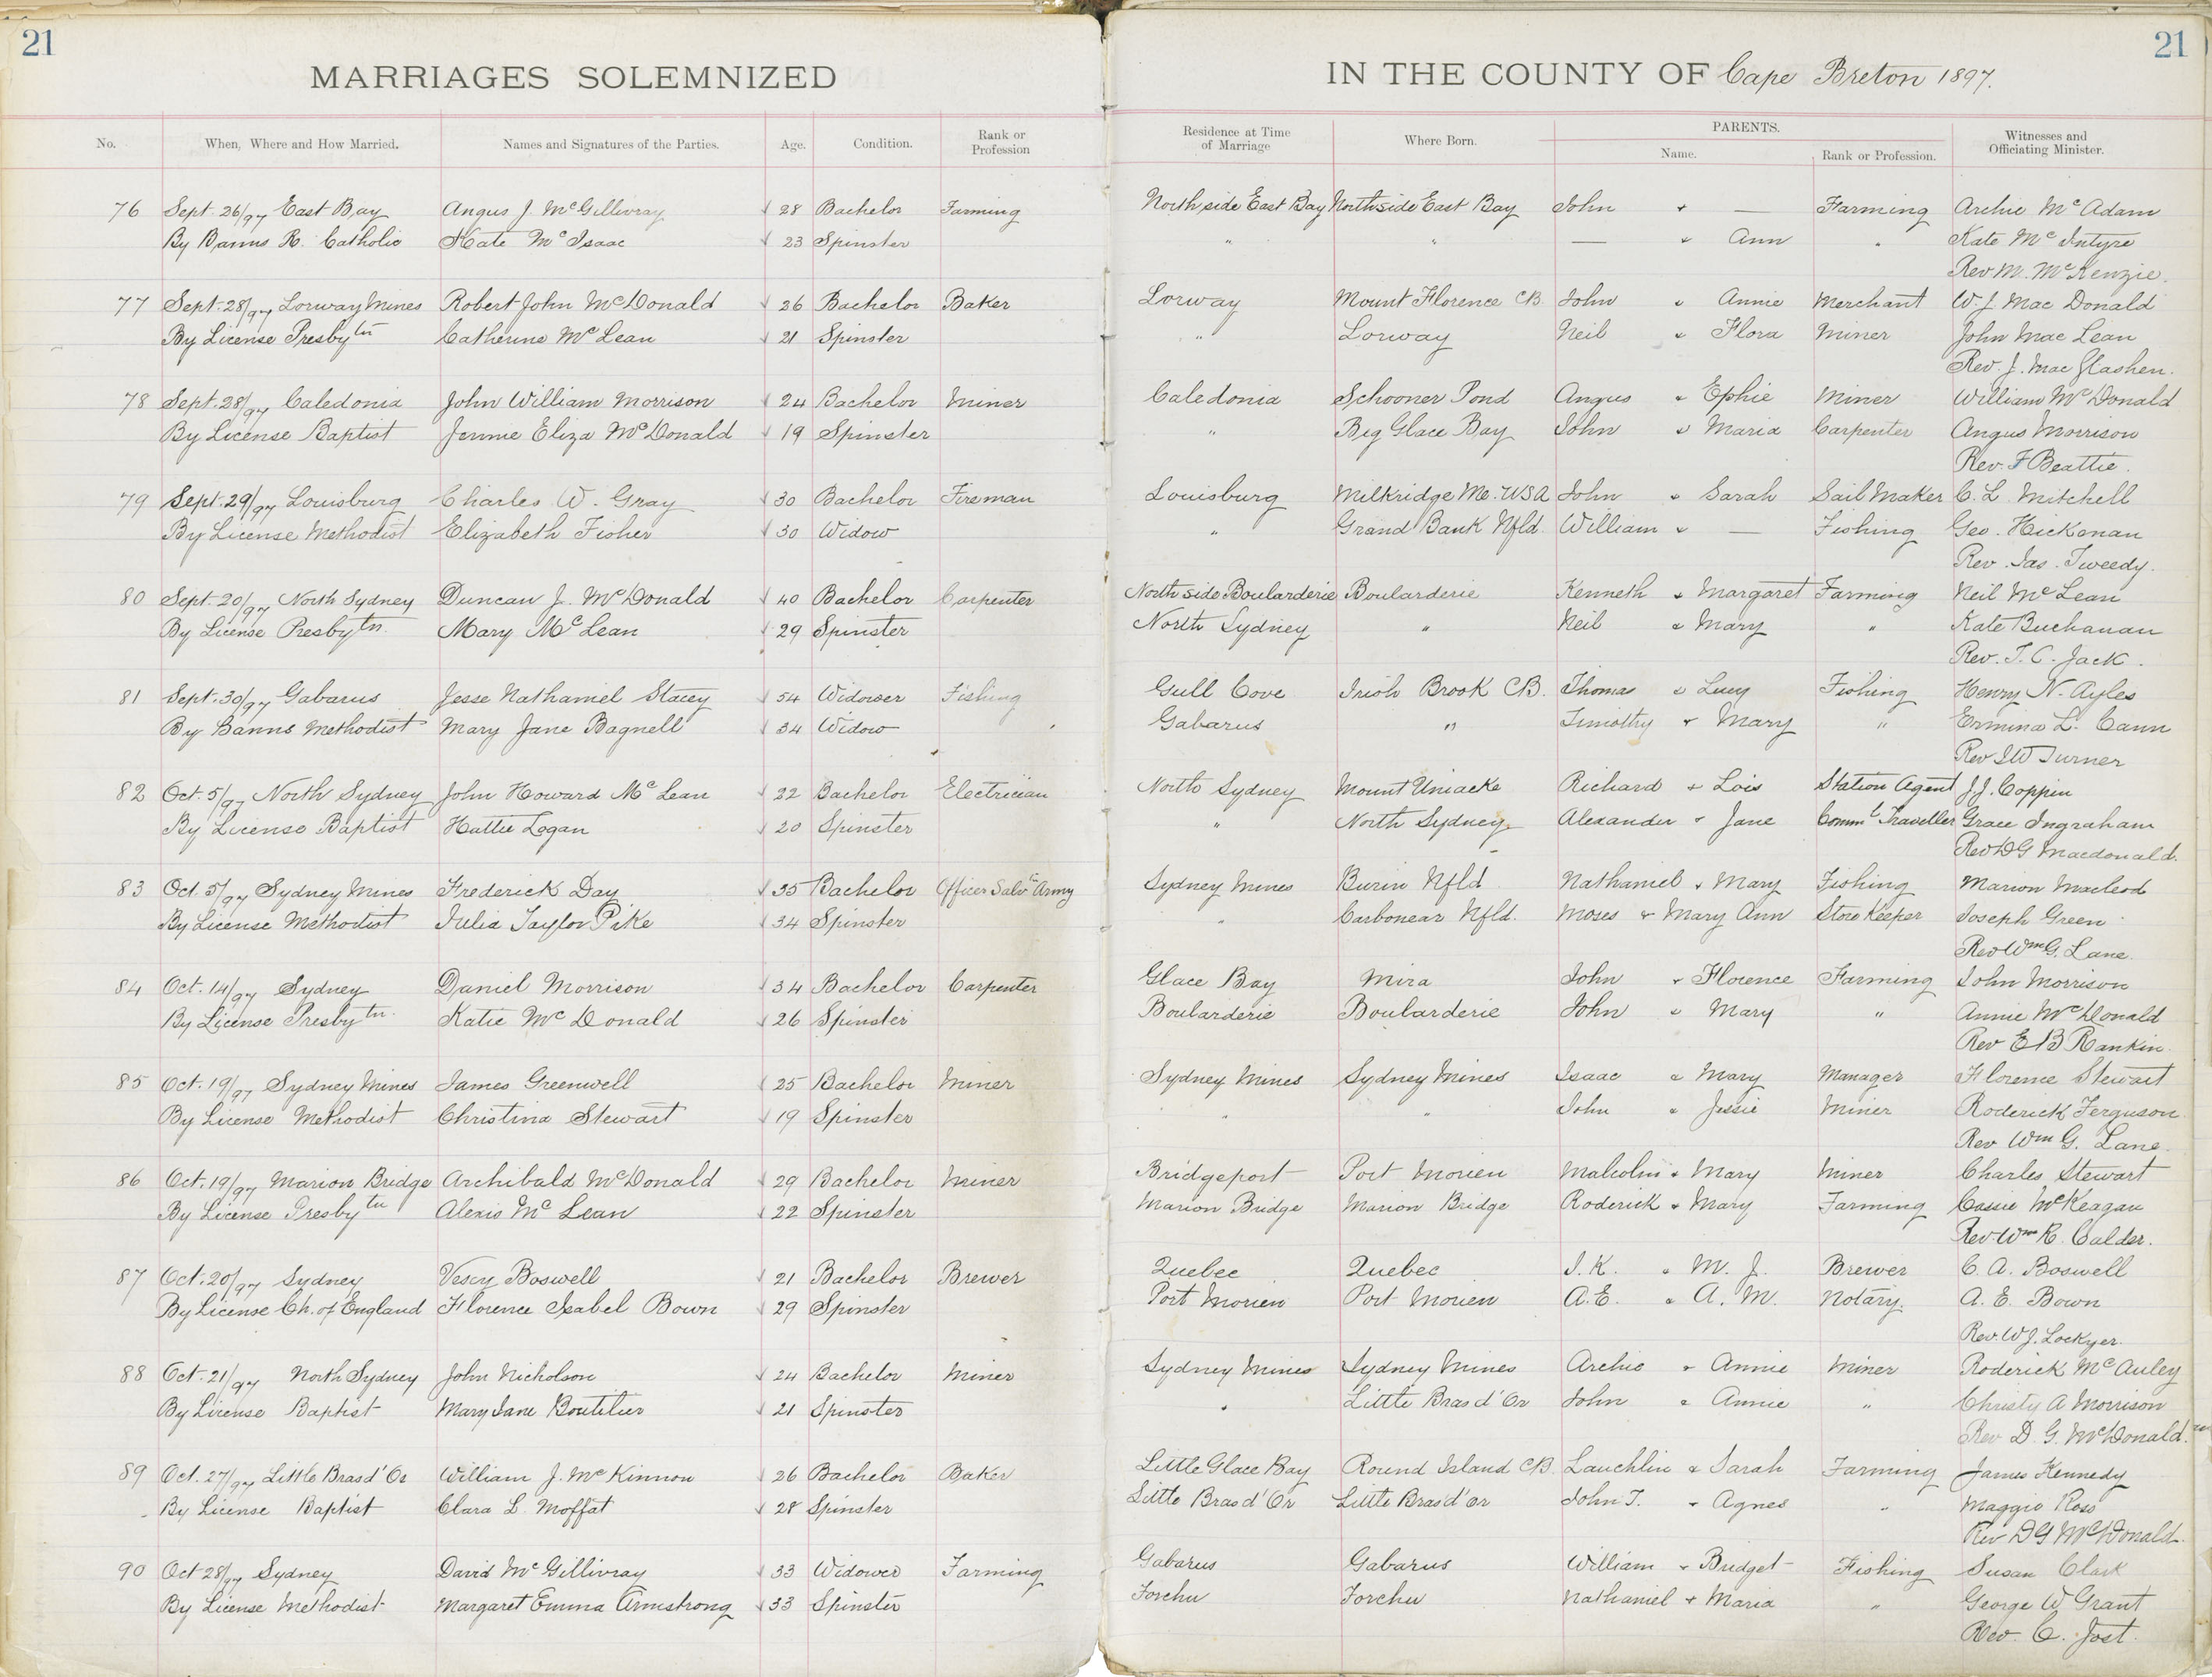 21
21
MARRIAGES SOLEMNIZED
IN THE COUNTY OF Cape Breton 1897.
No. When, Where and How Married. Names and Signatures of the Parties. Age. Condition. Rank or Profession Residence at Time of Marriage Where Born. PARENTS. Name. Rank or Profession. Witnesses and Officiating Minister.
76 Sept. 26/97 East Bay Angus J. McGillivray 28 Bachelor Farming North side East Bay Northside East Bay John + — Farming Archie McAdam
By Banns R. Catholic Kate McIsaac 23 Spinster " " — + Ann " Kate McIntyre
Rev M. McKenzie.
77 Sept. 28/97 Lorway Mines Robert John McDonald 26 Bachelor Baker Lorway Mount Florence CB. John + Annie Merchant W. J. Mac Donald
By License Presbytn Catherine McLean 21 Spinster " Lorway Neil + Flora Miner John Mac Lean
Rev. J. Mac Glashen.
78 Sept. 28/97 Caledonia John William Morrison 24 Bachelor Miner Caledonia Schooner Pond Angus + Ephie Miner William McDonald
By License Baptist Jennie Eliza McDonald 19 Spinster " Big Glace Bay John + Maria Carpenter Angus Morrison
Rev. F Beattie.
79 Sept. 29/97 Louisburg Charles W. Gray 30 Bachelor Fireman Louisburg Milkridge Me. USA John + Sarah Sail Maker C. L. Mitchell
By License Methodist Elizabeth Fisher 30 Widow " Grand Bank Nfld. William + — Fishing Geo. Hickman
Rev. Jas. Tweedy.
80 Sept. 20/97 North Sydney Duncan J. McDonald 40 Bachelor Carpenter North side Boularderie Boularderie Kenneth + Margaret Farming Neil McLean
By License Presbytn. Mary McLean 29 Spinster North Sydney " Neil + Mary " Kate Buchanan
Rev. T. C. Jack.
81 Sept. 30/97 Gabarus Jesse Nathaniel Stacey 54 Widower Fishing Gull Cove Irish Brook CB. Thomas + Lucy Fishing Henry N. Ayles
By Banns Methodist Mary Jane Bagnell 34 Widow Gabarus " Timothy + Mary " Ermina L. Cann
Rev IW Turner
82 Oct. 5/97 North Sydney John Howard McLean 22 Bachelor Electrician North Sydney Mount Uniacke Richard + Lois Station Agent J. J. Coppin
By License Baptist Hattie Logan 20 Spinster " North Sydney Alexander + Jane Comml Traveller Grace Ingraham
Rev DG Macdonald.
83 Oct. 5/97 Sydney Mines Frederick Day 35 Bachelor Officer Salvtn Army Sydney Mines Burin Nfld Nathaniel + Mary Fishing Marion Macleod
By License Methodist Julia Taylor Pike 34 Spinster " Carbonear Nfld. Moses + Mary Ann Store Keeper Joseph Green
Rev Wm G. Lane.
84 Oct. 14/97 Sydney Daniel Morrison 34 Bachelor Carpenter Glace Bay Mira John + Florence Farming John Morrison
By License Presbytn. Katie McDonald 26 Spinster Boularderie Boularderie John + Mary " Annie McDonald
Rev E B Rankin.
85 Oct. 19/97 Sydney Mines James Greenwell 25 Bachelor Miner Sydney Mines Sydney Mines Isaac + Mary Manager Florence Stewart
By License Methodist Christina Stewart 19 Spinster " " John + Jessie Miner Roderick Ferguson
Rev Wm G. Lane.
86 Oct. 19/97 Marion Bridge Archibald McDonald 29 Bachelor Miner Bridgeport Port Morien Malcolm + Mary Miner Charles Stewart
By License Presbytn Alexis McLean 22 Spinster Marion Bridge Marion Bridge Roderick + Mary Farming Cassie McKeagan
Rev Wm R. Calder.
87 Oct. 20/97 Sydney Vesey Boswell 21 Bachelor Brewer Quebec Quebec J. K. + M. J. Brewer C. A. Boswell
By License Ch. of England Florence Isabel Bown 29 Spinster Port Morien Port Morien A. E. + A. M. Notary. A. E. Bown
Rev. W J. Lockyer.
88 Oct. 21/97 North Sydney John Nicholson 24 Bachelor Miner Sydney Mines Sydney Mines Archie + Annie Miner Roderick McAuley
By License Baptist Mary Jane Boutilier 21 Spinster " Little Bras d'Or John + Annie " Christy A Morrison
Rev D. G. McDonald.
89 Oct. 27/97 Little Bras d'Or William J. McKinnon 26 Bachelor Baker Little Glace Bay Round Island CB. Lauchlin + Sarah Farming James Kennedy
By License Baptist Clara L. Moffat 28 Spinster Little Bras d'Or Little Bras d'or John T. + Agnes " Maggie Ross
Rev D G McDonald.
90 Oct 28/97 Sydney David McGillivray 33 Widower Farming Gabarus Gabarus William + Bridget Fishing Susan Clark
By License Methodist Margaret Emma Armstrong 33 Spinster Forchu Forchu Nathaniel + Maria " George W Grant
Rev. C. Jost.